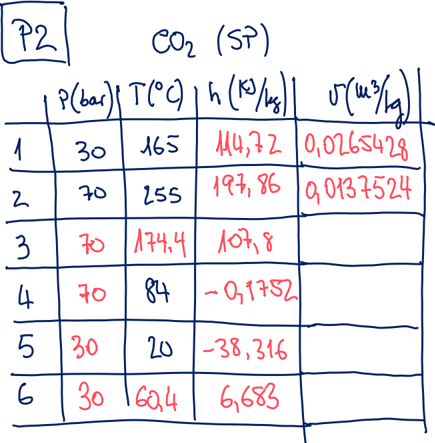 P2
CO₂ (SP)
P(bar) T(°C) h(KJ/kg) v(m³/kg)
1 30 165 114,72 0,0265428
2 70 255 197,86 0,0137524
3 70 174,4 107,8
4 70 84 -0,1752
5 30 20 -38,316
6 30 60,4 6,683